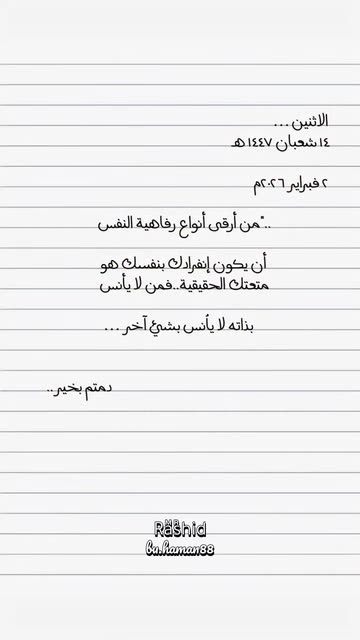 الاثنين ...
١٤ شعبان ١٤٤٧ هـ
٢ فبراير ٢٠٢٦م
.."من أرقى أنواع رفاهية النفس
أن يكون إنفرادك بنفسك هو
متعتك الحقيقية..فمن لا يأنس
بذاته لا يأنس بشئ آخر ...
دمتم بخير ..
MR
Rashid
bu.haman88